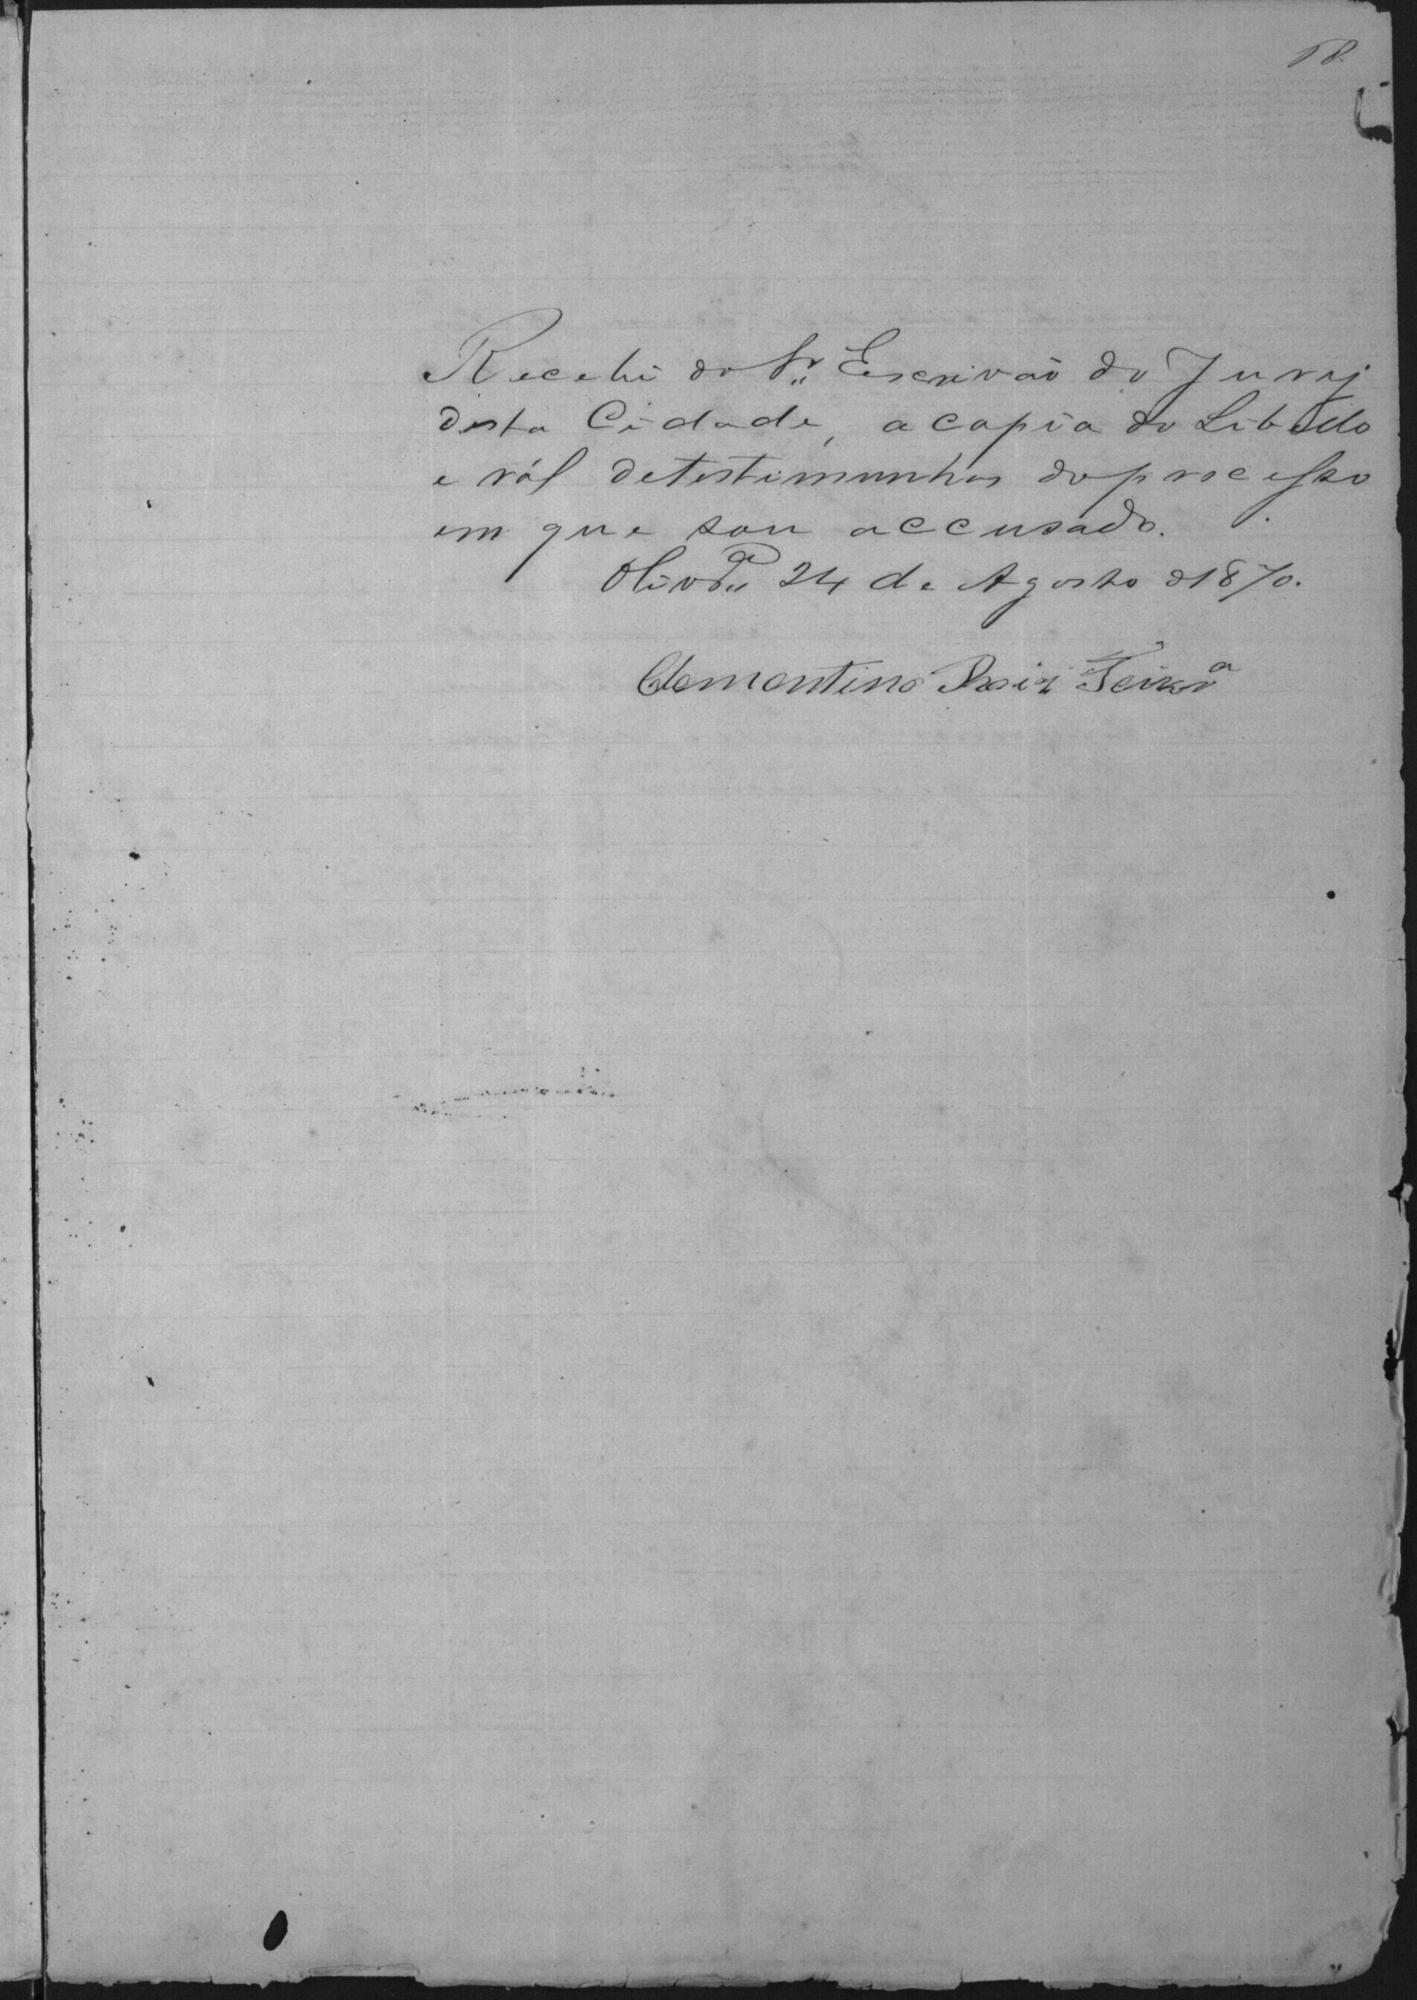 18.
Recebi do Sr. Escrivão do Jury
desta Cidade, a copia do Libello
e ról de testimunhas do processo
em que sou accusado.
Olivra 24 de Agosto d 1870.
Clementino Roiz Teixra